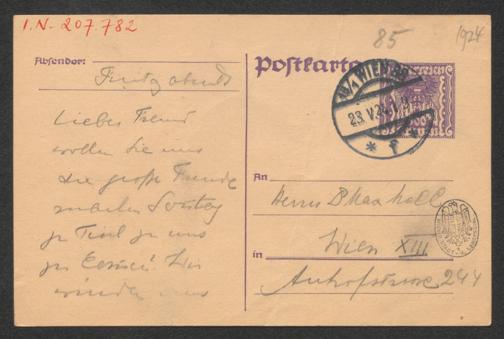 I.N. 207.782
85
1924
Absender:
Postkarte
WIEN
23.V.24
Freitag abends
Lieber Freund
wollen Sie uns
die große Freude
machen Sonntag
zu Tisch zu uns
zu kommen! Wir
würden uns
An
Herrn D
Wien XIII
in
Auhofstrasse 244